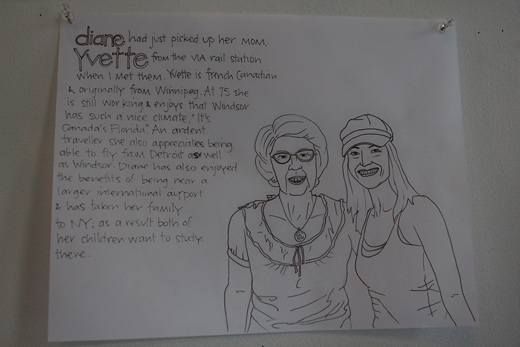 diane had just picked up her mom,
Yvette from the VIA rail station
when I met them. Yvette is french Canadian
& originally from Winnipeg. At 75 she
is still working & enjoys that Windsor
has such a nice climate, "It's
Canada's Florida" An ardent
traveller she also appreciates being
able to fly from Detroit as well
as Windsor. Diane has also enjoyed
the benefits of being near a
larger international airport
& has taken her family
to NY; as a result both of
her children want to study
there.